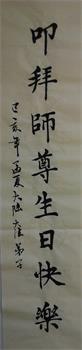 叩拜師尊生日快樂
己亥年 夏大陸 弟子